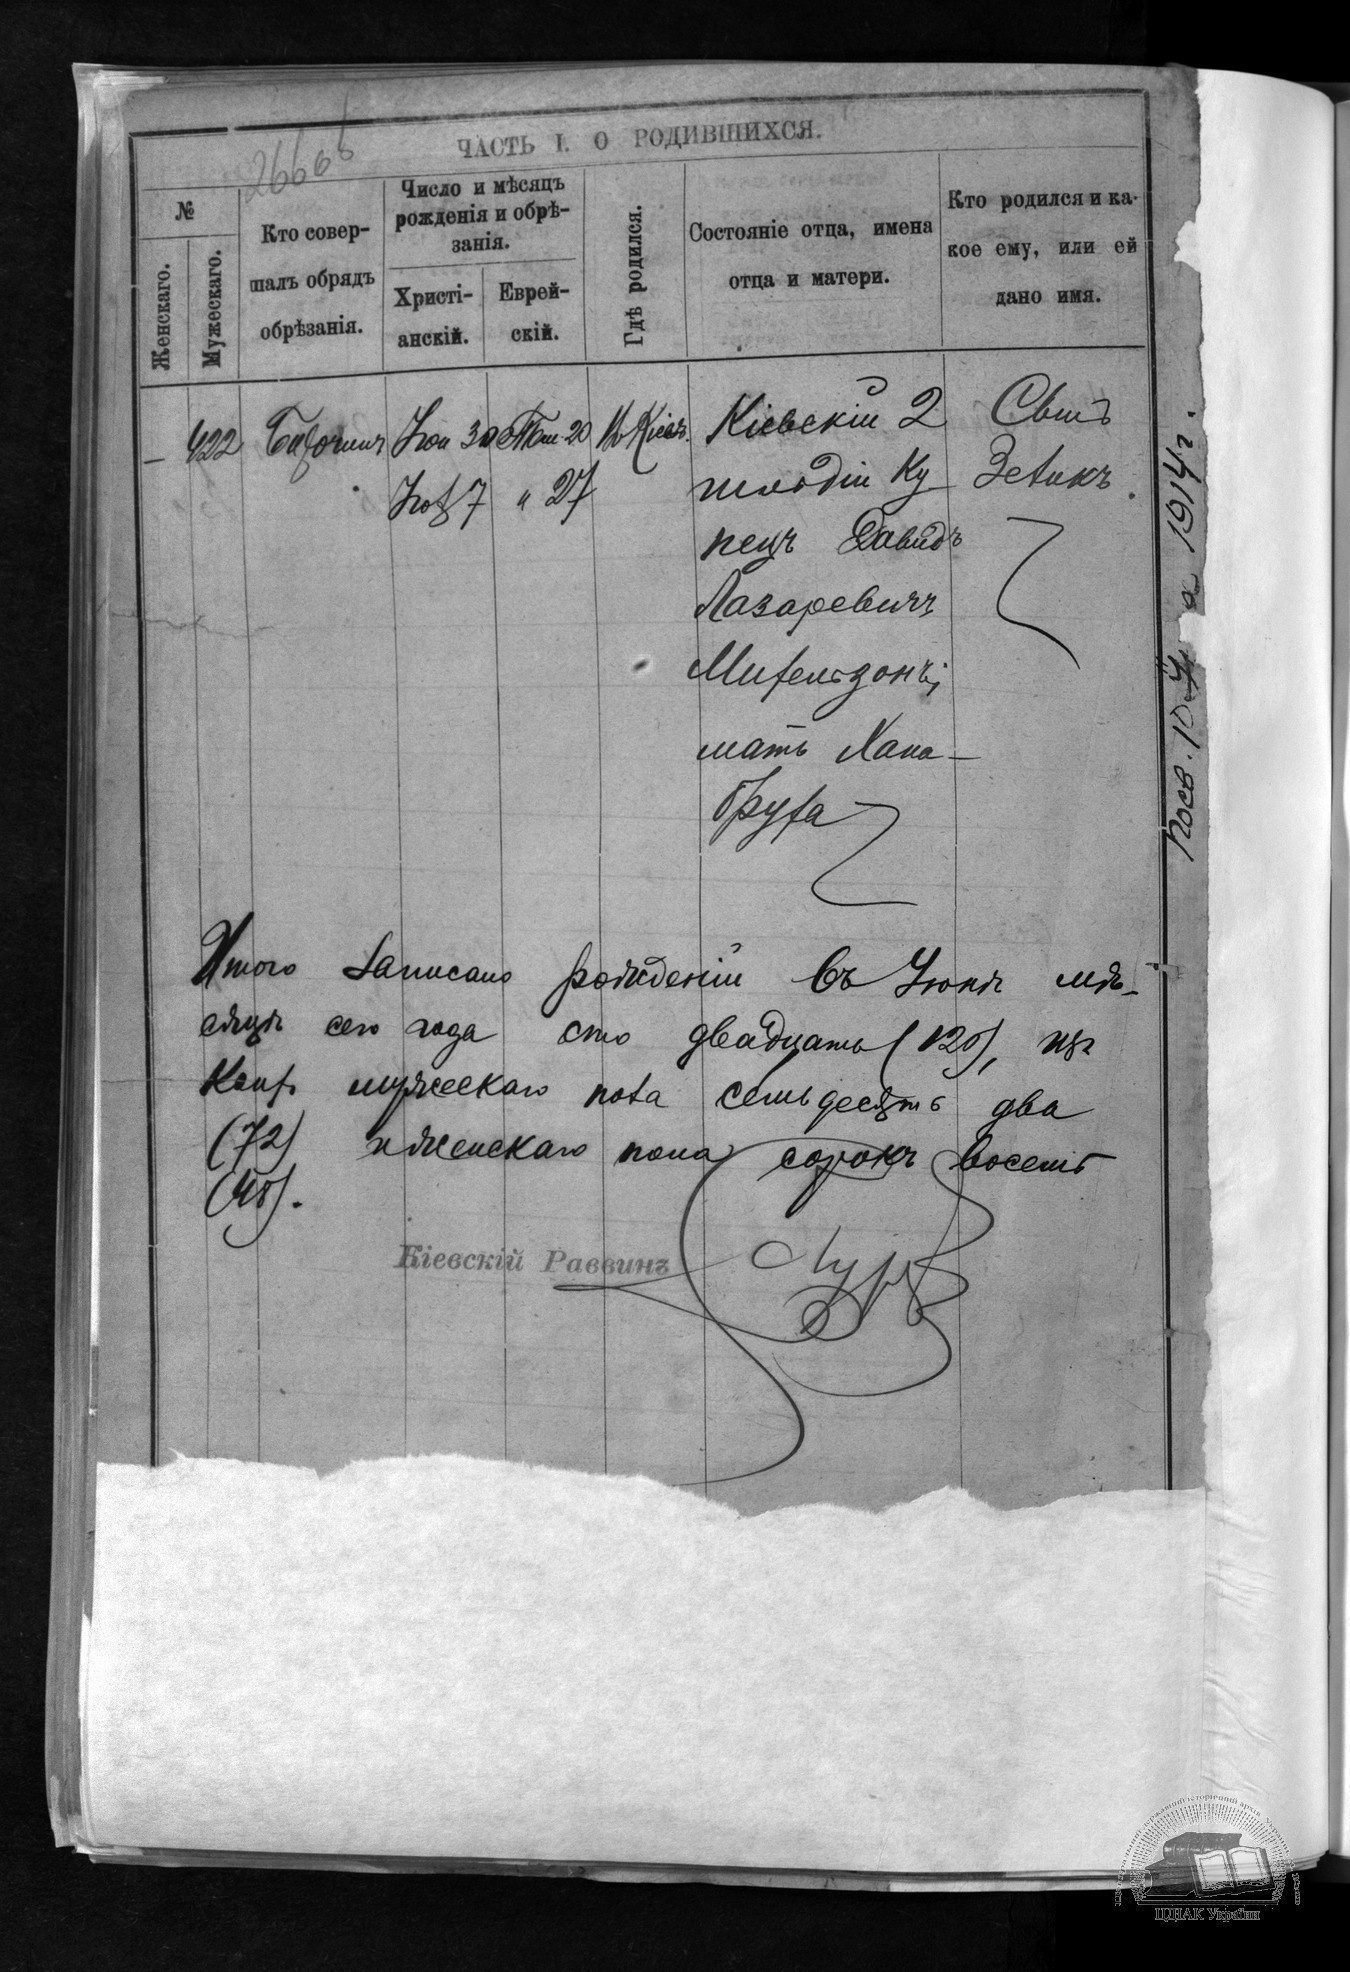 ЧАСТЬ I. О РОДИВШИХСЯ.
№
Женскаго.
Мужескаго.
Кто совер-
шалъ обрядъ
обрѣзанія.
Число и мѣсяцъ
рожденія и обрѣ-
занія.
Христі-
анскій.
Еврей-
скій.
Гдѣ родился.
Состояніе отца, имена
отца и матери.
Кто родился и ка-
кое ему, или ей
дано имя.
– 422
Іюн 30
20
Въ Кіевѣ.
Іюл 7
" 27
Кіевскій 2
гильдіи Ку
пецъ Давидъ
Лазаревичъ
Мительзонъ;
мать Хана-
Фрука
Сынъ
Зеликъ
Итого записано рожденій въ Іюнѣ мѣ-
сяцѣ сего года сто двадцать (120), изъ
коихъ мужескаго пола семьдесятъ два
(72) и женскаго пола сорокъ восемь
(48).
Кіевскій Раввинъ
1914 г.
ЦДІАК України